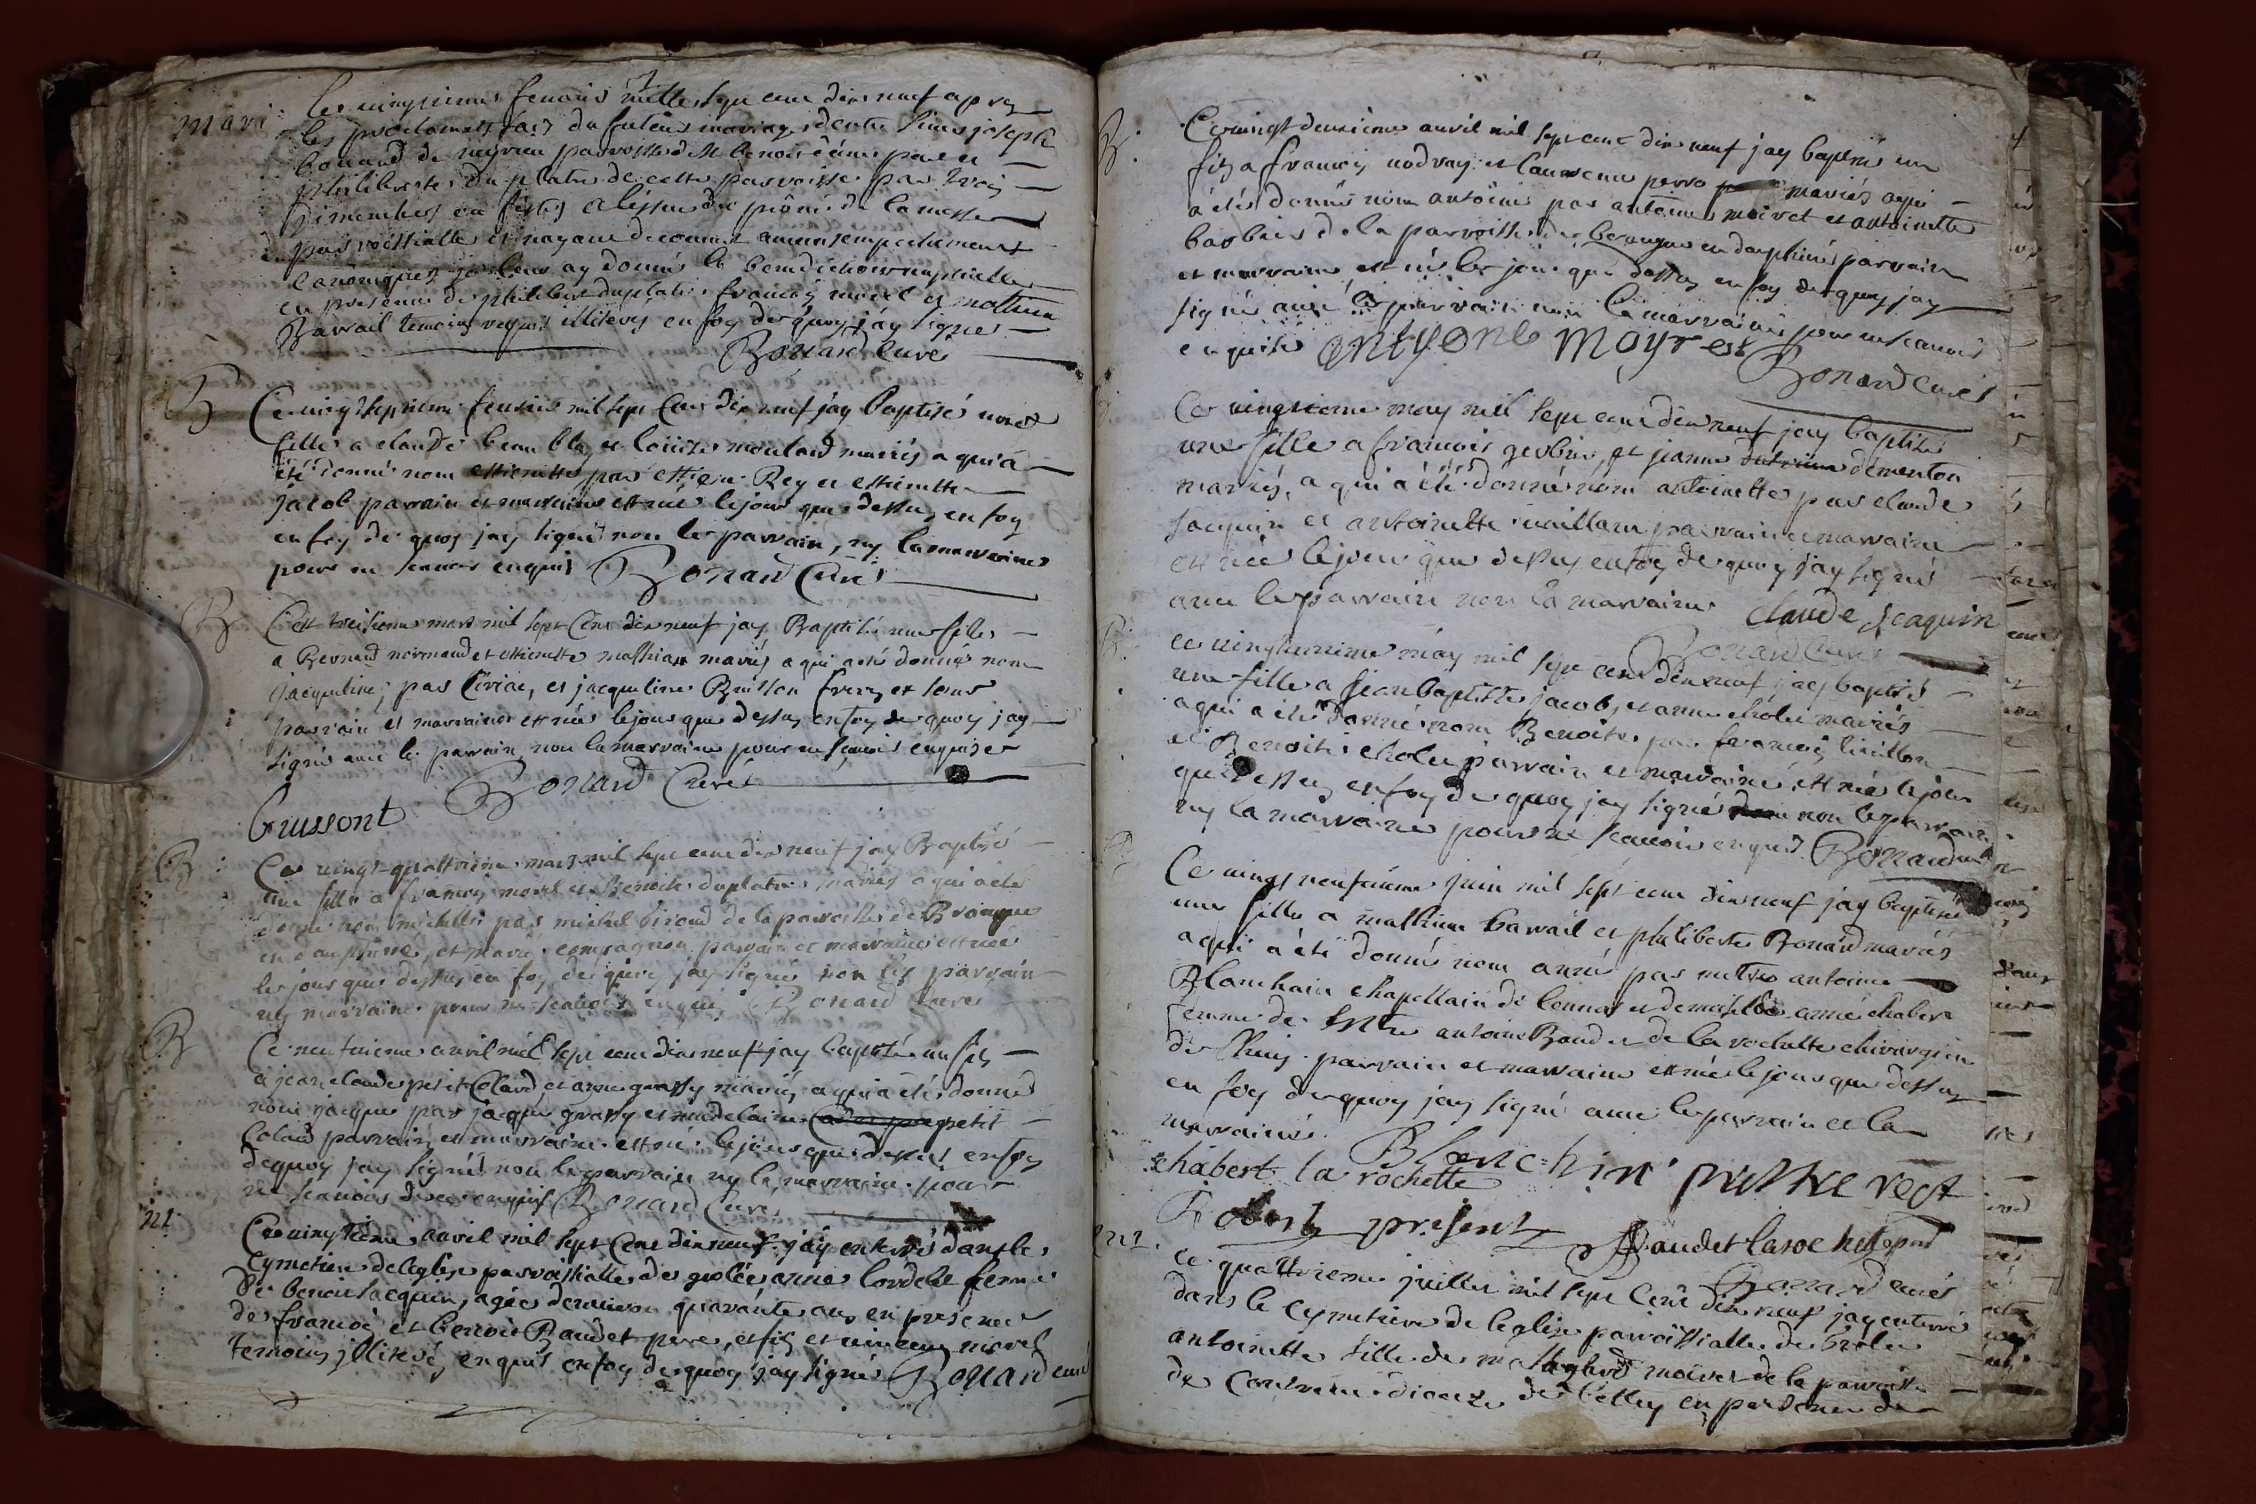 mari:
Ce vingtieme feuvrier mille sept cent dix neuf apres
les proclamats fais du futeur mariage d'entre sieur joseph
bonard de meyrieu parroisse de st benoit d'une part et
philiberte du platre de cette parroisse par trois
dimenches ou festes a l'issue du prône de la messe
parroissialle et n'ayant decouvert aucun empechement
canonique je leur ay donné la benediction nuptialle
en presence de philibert duplatre francois morel et mathieu
Barrail temoins requis illiterés en foy de quoy j'ay signé
Bonard curé
B
Ce vingt septieme feuvrier mil sept cens dix neuf jay baptisé une
fille a claude beau blez et louise moulard mariés a qui a
été donné nom estiennette par estiene Rey et estienette
jacob parrain et marraine est née le jour que dessus en foy
en foy de quoy jay signé non le parrain, ny la marraine
pour ne scavoir enquis Bonard Curé
B
Cet treisieme mars mil sept Cens dix neuf jay Baptisé une fille
a Bernard normand et estienette mathias mariés a qui a été donné nom
jacqueline, par Ciriac, et jacqueline Buisson frere et soeur
parrain et marraine est née le jour que dessus en foy de quoy jay
signé avec le parrain non la marraine pour ne scavoir enquise
Bonard Curé
Buissont
B:
Ce vingt-quattrieme mars mil sept cent dix neuf jay Baptisé
une fille a francois morel et Benoite duplatre mariés a qui a été
donné nom michelle par michel biraud de la parroisse de Brangue
en dauphiné, et marie compagnon parrain et marraine est née
le jour que dessus en foy de quoy jay signé non les parrain
ny marraine pour ne scavoir enquis Bonard Curé
B
Ce neufvieme avril mil sept cent dix neuf jay baptisé un fils
a jean claude petit Colard et anne grassy mariés a qui a été donné
nom jacque par jacque grassy et madelaine petit
Colard parrain et marraine est né le jour que dessus en foy
de quoy jay signé non le parrain ny la marraine pour
ne scavoir de ce enquis Bonard Curé
M
Ce vingtième avril mil sept Cens dix neuf jay enterré dans le
Cymetiere de leglise parroissialle de groslée anne Cordelle femme
de benoit jacquin, agée denviron quarante ans en presence
de francoi et benoit Baudet pere, et fils et vincent morel
temoins illiterés enquis en foy de quoy jay signé Bonard curé
B.
Ce vingt deuxieme avril mil sept cent dix neuf jay baptisé un
fils a francois nodray et Laurence perro mariés a qui
a été donné nom antoine par antoine moiret et antoinette
barbier de la parroisse de brangue en dauphiné parrain
et marraine est né le jour que dessus en foy de quoy jay
signé avec le parrain non la marraine pour ne scavoir
enquise antyone moyret
Bonard curé
B
Ce vingtieme may mil sept cent dix neuf jay baptisé
une fille a francois gerbin, et jeanne dementon
mariés, a qui a été donné nom antoinette par claude
jacquin et antoinette vaillant parrain et marraine
est née le jour que dessus en foy de quoy jay signé
avec le parrain non la marraine Claude Jcaquin
Bonard Curé
B.
ce vingtunieme may mil sept cens dix neuf jay baptisé
une fille a jean baptiste jacob, et anne cholu mariés
a qui a été donné nom Benoite par francois
et Benoite cholu parrain et marraine est née le jour
que dessus en foy de quoy jay signé non le parrain
ny la marraine pour ne scavoir enquis Bonard curé
B
Ce vingt neufvieme juin mil sept cent dix neuf jay baptisé
une fille a mathieu barrail et philiberte Bonard mariés
a qui a été donné nom anne par mettre antoine
Blanchain chapellain de lennas et demoiselle anne chabert
femme de antoine Baudet de la rochette chirurgien
de parrain et marraine est née le jour que dessus
en foy de quoy jay signé avec le parrain et la
marraine.
Blanchin prestre rect
chabert la rochette
present Baudet larochette
Bonard curé
M.
ce quattrieme juillet mil sept Cens dix neuf jay enterré
dans le cymetiere de leglise parroissialle de grolée
antoinette fille de moiret de la parroisse
de Conzieu diocese de belley en presence de